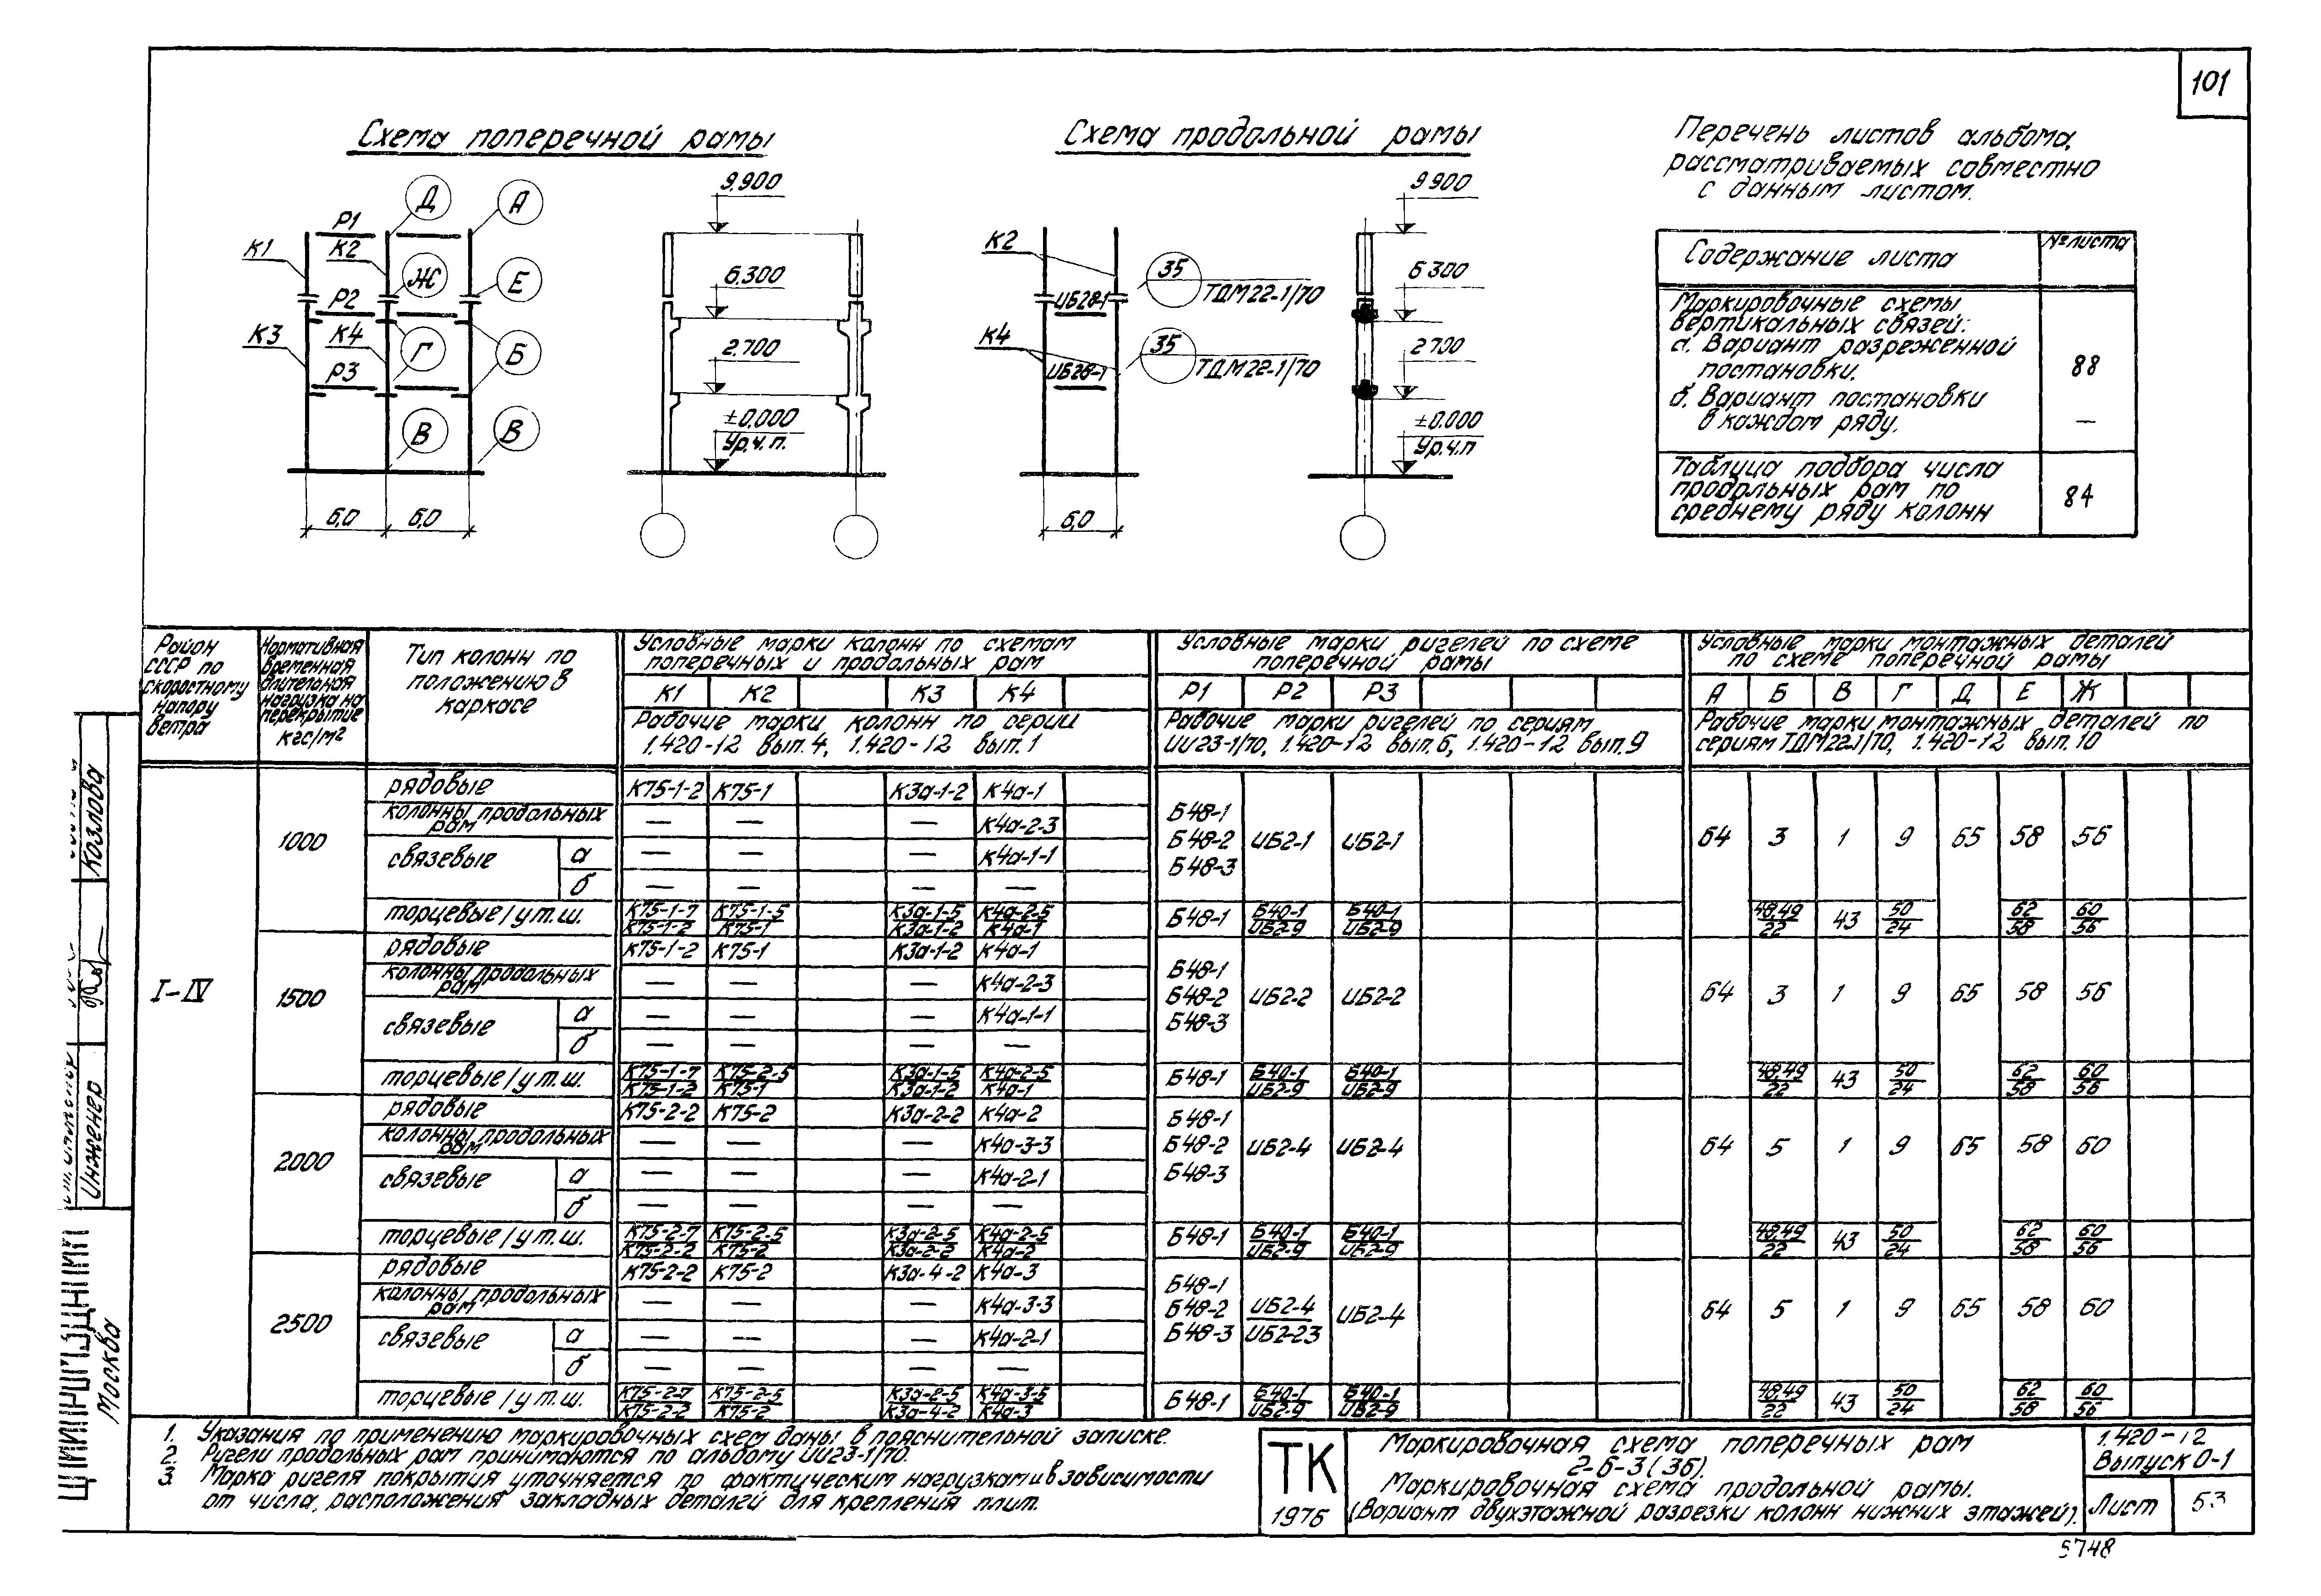 101
Схема поперечной рамы
Схема продольной рамы
Перечень листов альбома,
рассматриваемых совместно
с данным листом.
Содержание листа
№ листа
Маркировочные схемы
вертикальных связей:
а. Вариант разреженной
постановки.
88
б. Вариант постановки
в каждом ряду.
—
Таблица подбора числа
продольных рам по
среднему ряду колонн
84
Д А
Р1
К1 К2
Ж Е
Р2
К3 К4
Г Б
Р3
В В
6,0 6,0
9.900
6.300
2.700
±0.000
Ур.ч.п.
К2
35
ТДМ22-1/70
ИБ28-1
К4
35
ТДМ22-1/70
ИБ28-1
6,0
9 900
6 300
2 700
±0.000
Ур.ч.п
Район
СССР по
скоростному
напору
ветра
Нормативная
временная
длительная
нагрузка на
перекрытие
кгс/м²
Тип колонн по
положению в
каркасе
Условные марки колонн по схемам
поперечных и продольных рам
К1 К2 К3 К4
Рабочие марки колонн по серии
1.420-12 вып. 4, 1.420-12 вып. 1
Условные марки ригелей по схеме
поперечной рамы
Р1 Р2 Р3
Рабочие марки ригелей по сериям
ИИ23-1/70, 1.420-12 вып. 6, 1.420-12 вып. 9
Условные марки монтажных деталей
по схеме поперечной рамы
А Б В Г Д Е Ж
Рабочие марки монтажных деталей по
сериям ТДМ22-1/70, 1.420-12 вып. 10
I-IV
1000
рядовые К75-1-2 К75-1 К3а-1-2 К4а-1
колонны продольных
рам — — — К4а-2-3
связевые а — — — К4а-1-1
б — — — —
Б48-1
Б48-2 ИБ2-1 ИБ2-1
Б48-3
64 3 1 9 65 58 56
торцевые/у т.ш. К75-1-7 К75-1-5 К3а-1-5 К4а-2-5 Б48-1 Б40-1 Б40-1 48,49 43 50 62 60
К75-1-2 К75-1 К3а-1-2 К4а-1 ИБ2-9 ИБ2-9 22 24 58 56
1500
рядовые К75-1-2 К75-1 К3а-1-2 К4а-1
колонны продольных
рам — — — К4а-2-3
связевые а — — — К4а-1-1
б — — — —
Б48-1
Б48-2 ИБ2-2 ИБ2-2
Б48-3
64 3 1 9 65 58 56
торцевые/у т.ш. К75-1-7 К75-2-5 К3а-1-5 К4а-2-5 Б48-1 Б40-1 Б40-1 48,49 43 50 62 60
К75-1-2 К75-1 К3а-1-2 К4а-1 ИБ2-9 ИБ2-9 22 24 58 56
2000
рядовые К75-2-2 К75-2 К3а-2-2 К4а-2
колонны продольных
рам — — — К4а-3-3
связевые а — — — К4а-2-1
б — — — —
Б48-1
Б48-2 ИБ2-4 ИБ2-4
Б48-3
64 5 1 9 65 58 60
торцевые/у т.ш. К75-2-7 К75-2-5 К3а-2-5 К4а-2-5 Б48-1 Б40-1 Б40-1 48,49 43 50 62 60
К75-2-2 К75-2 К3а-2-2 К4а-2 ИБ2-9 ИБ2-9 22 24 58 56
2500
рядовые К75-2-2 К75-2 К3а-4-2 К4а-3
колонны продольных
рам — — — К4а-3-3
связевые а — — — К4а-2-1
б — — — —
Б48-1
Б48-2 ИБ2-4 ИБ2-4
Б48-3 ИБ2-23
64 5 1 9 65 58 60
торцевые/у т.ш. К75-2-7 К75-2-5 К3а-2-5 К4а-3-5 Б48-1 Б40-1 Б40-1 48,49 43 50 62 60
К75-2-2 К75-2 К3а-4-2 К4а-3 ИБ2-9 ИБ2-9 22 24 58 56
1. Указания по применению маркировочных схем даны в пояснительной записке.
2. Ригели продольных рам принимаются по альбому ИИ23-1/70.
3. Марка ригеля покрытия уточняется по фактическим нагрузкам и в зависимости
от числа, расположения закладных деталей для крепления плит.
ТК
1976
Маркировочная схема поперечных рам
2-6-3(36).
Маркировочная схема продольной рамы.
(Вариант двухэтажной разрезки колонн нижних этажей).
1.420-12
Выпуск 0-1
Лист 53
5748
Козлова
Инженер
Москва